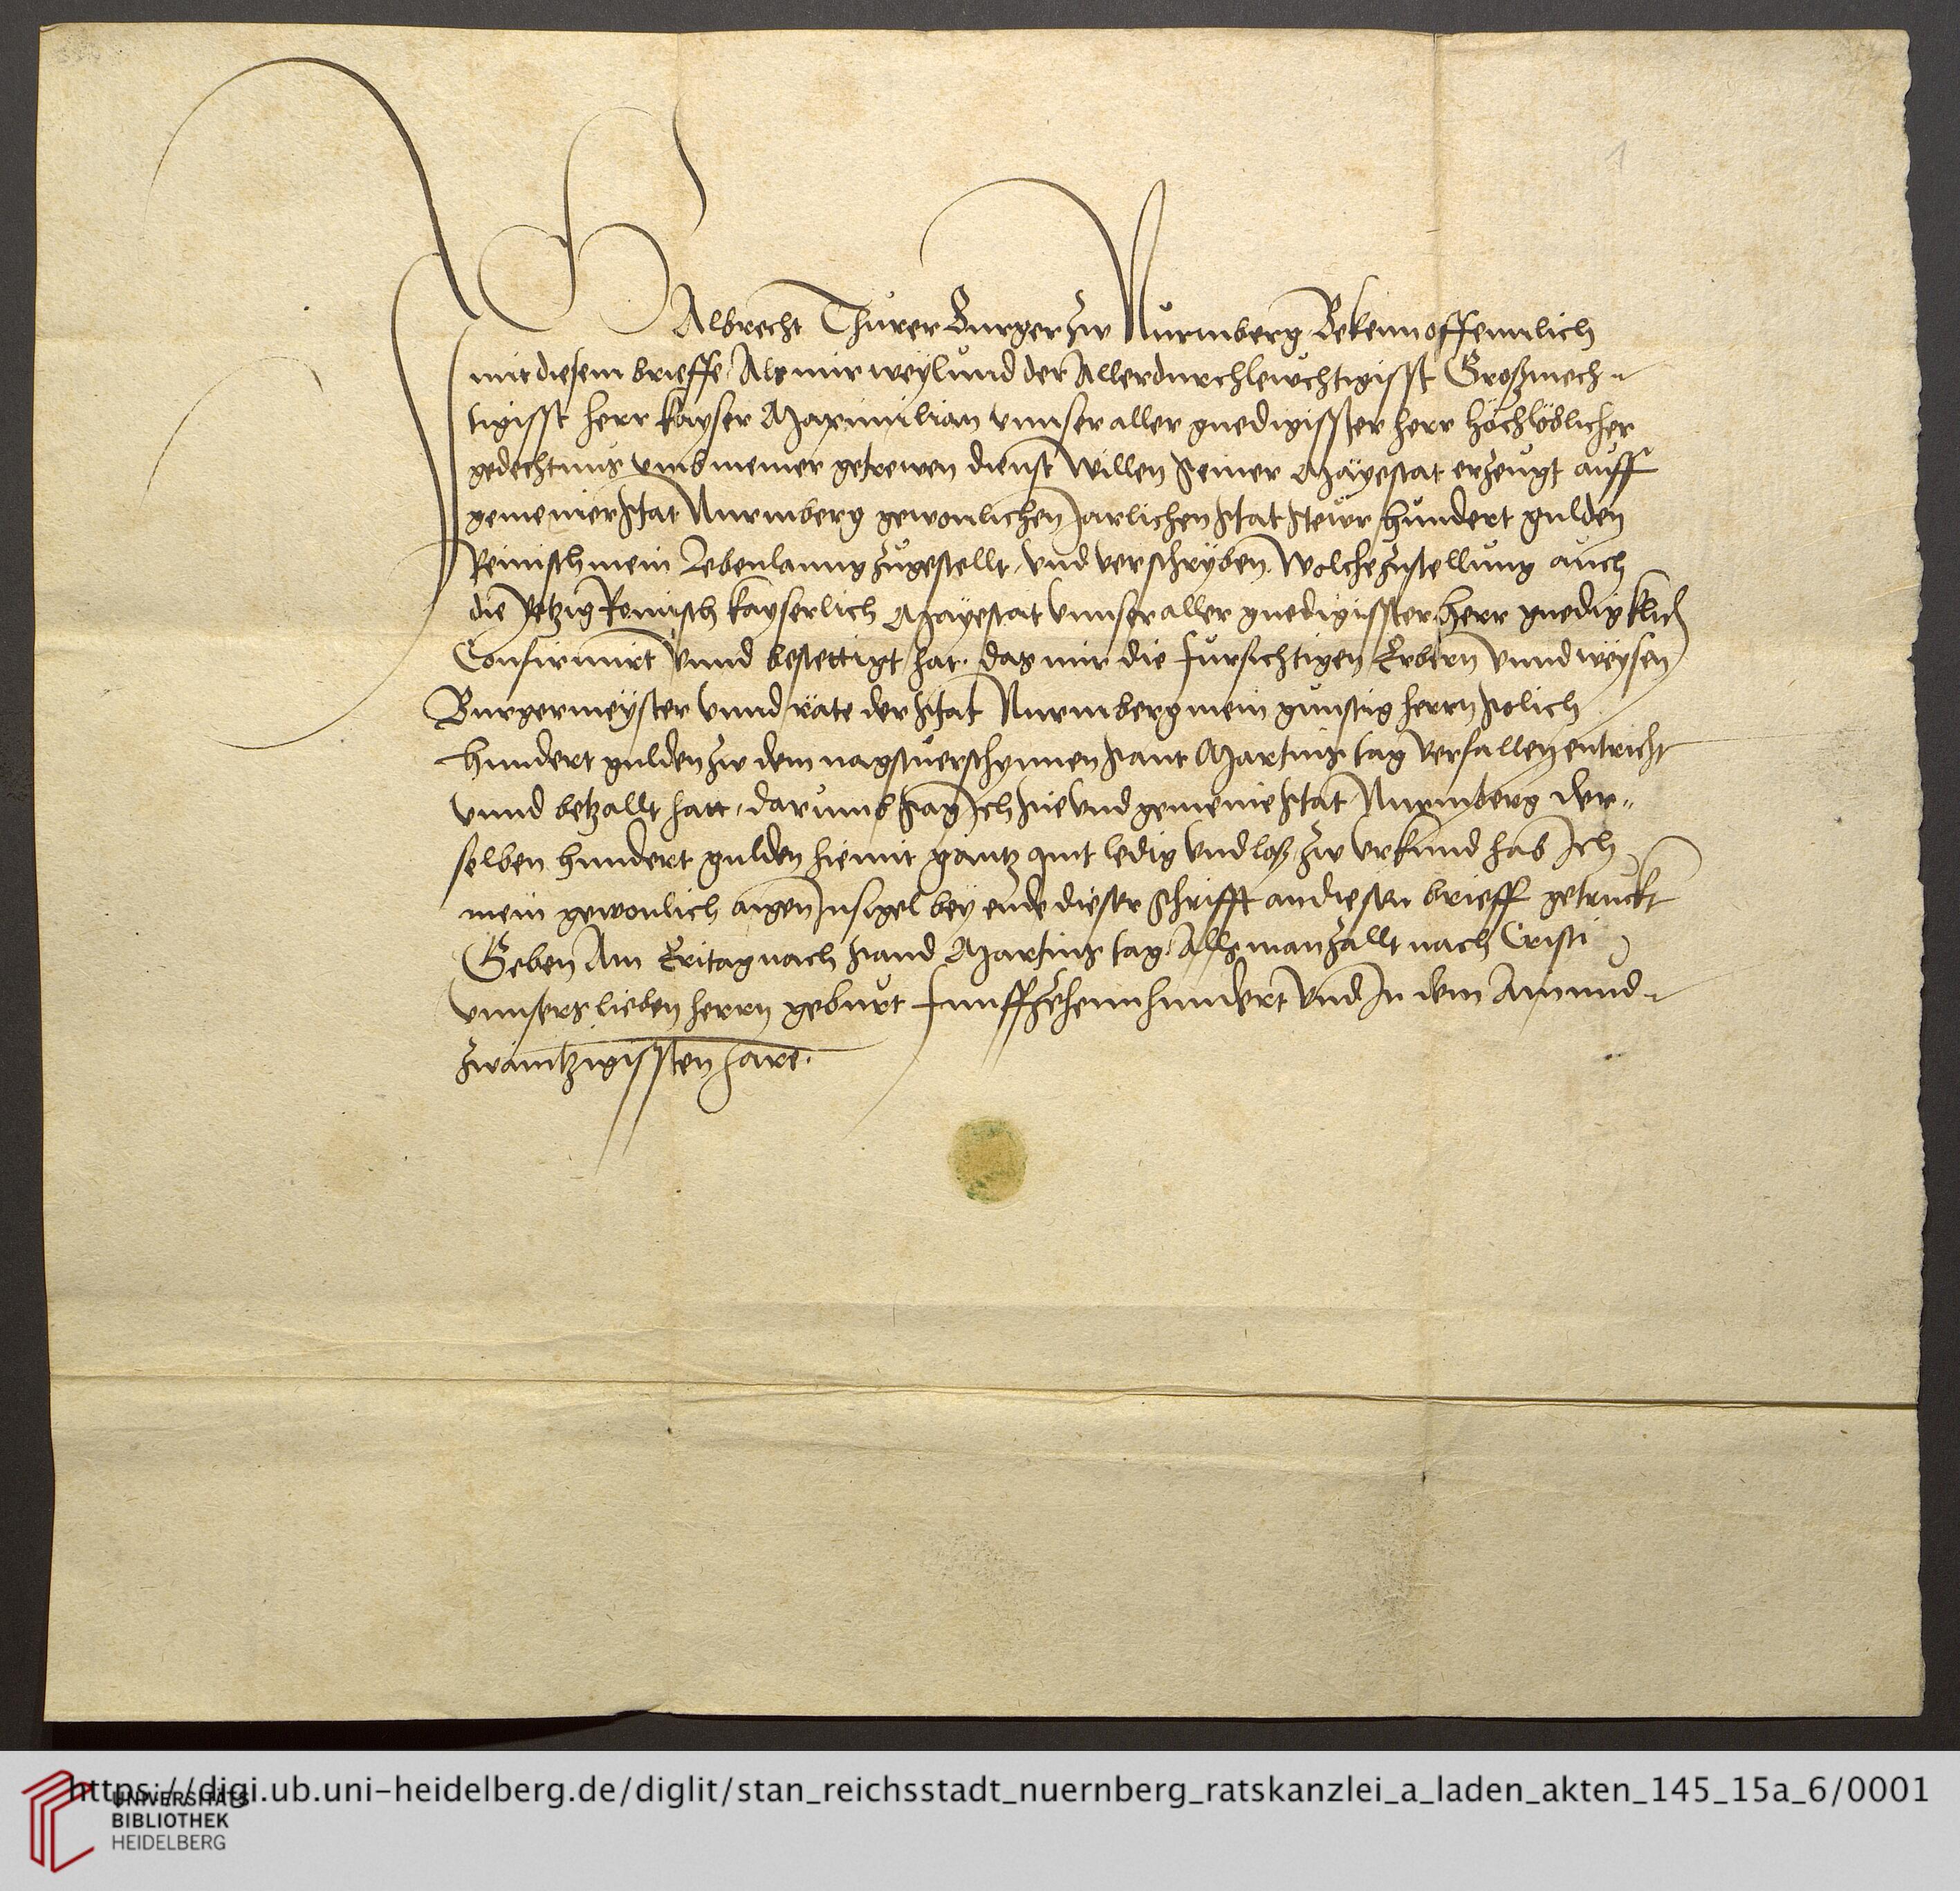 Ich Albrecht Thürer Burger zw Nürmberg Bekenn offennlich
mit diesem brieffe Als mir weylund der Allerdurchlewchtigisst Großmech-
tigisst herr kayser Maximilian vnnser aller gnedigisster herr hochlöblicher
gedechtnus vmb meiner getrewen dienst willen seiner Mayestat erzeugt auff
gemeiner stat Nurmberg gewonlichen Jarlichen stat stewr hundert gulden
Reinisch mein Lebenlanng zugestellt vnd verschryben. Wolche zustellung auch
die Yetzig Romisch kayserlich Mayestat vnnser aller gnedigisster herr gnedigklich
Confirmirt vnnd bestettigt hat. das mir die fursichtigen Erbern vnnd weysen
Burgermeyster vnnd räte der stat Nurmberg mein gunstig herrn solich
hundert gulden zw dem nagstuerschynnen sant Martins tag verfallen entricht
vnnd betzallt hatt, darumb sag Ich sie vnd gemeine stat Nurmberg der-
selben hundert gulden hiemit gantz quit ledig vnd loß zw vrkund hab Ich
mein gewonlich aigen Insigel bey ende dieser schrifft an diesen brieff getruckt
Geben Am Eritag nach sand Martins tag. Alls man zallt nach Cristi
vnnsers lieben herrn geburt funffzehennhundert vnd In dem Ainund-
zwaintzigissten Jare.
1
UNIVERSITÄTS
BIBLIOTHEK
HEIDELBERG
https://digi.ub.uni-heidelberg.de/diglit/stan_reichsstadt_nuernberg_ratskanzlei_a_laden_akten_145_15a_6/0001